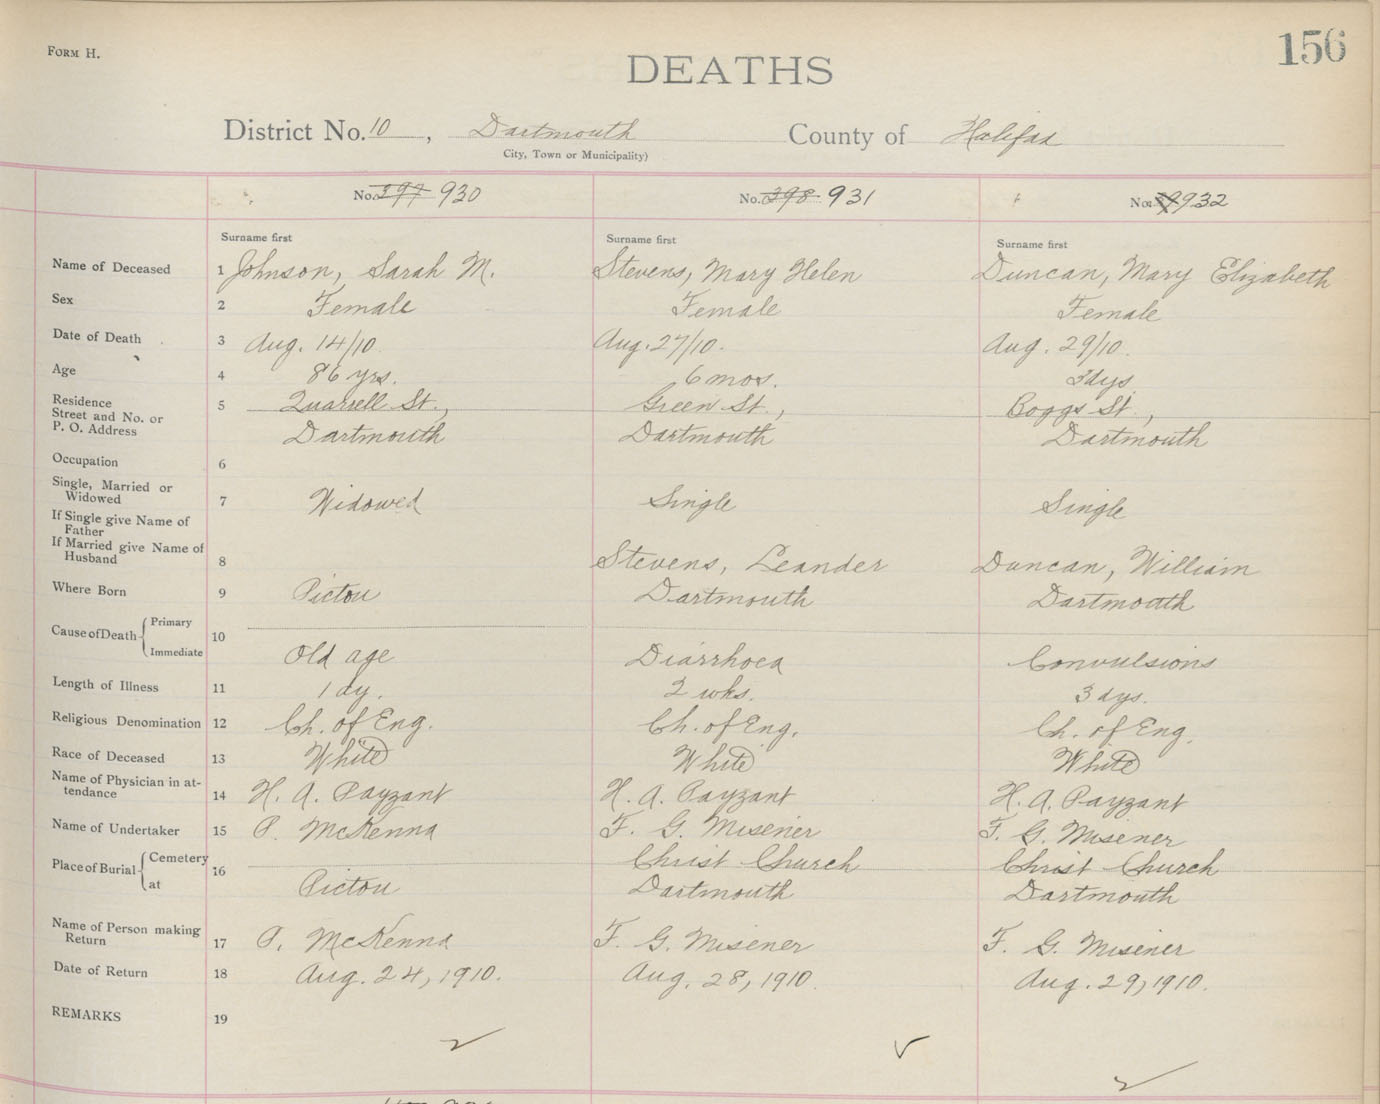 FORM H.
156
DEATHS
District No. 10, Dartmouth County of Halifax
City, Town or Municipality)
No. 397 930 No. 398 931 No. 932
Surname first Surname first Surname first
Name of Deceased 1 Johnson, Sarah M. Stevens, Mary Helen Duncan, Mary Elizabeth
Sex 2 Female Female Female
Date of Death 3 Aug. 14/10 Aug. 27/10. Aug. 29/10.
Age 4 86 yrs. 6 mos. 3 dys
Residence
Street and No. or 5 Quarrell St., Green St., Boggs St.,
P. O. Address Dartmouth Dartmouth Dartmouth
Occupation 6
Single, Married or
Widowed 7 Widowed Single Single
If Single give Name of
Father
If Married give Name of
Husband 8 Stevens, Leander Duncan, William
Where Born 9 Pictou Dartmouth Dartmouth
Cause of Death Primary 10
Immediate Old age Diarrhoea Convulsions
Length of Illness 11 1 dy. 2 wks. 3 dys.
Religious Denomination 12 Ch. of Eng. Ch. of Eng. Ch. of Eng.
Race of Deceased 13 White White White
Name of Physician in at-
tendance 14 H. A. Payzant H. A. Payzant H. A. Payzant
Name of Undertaker 15 P. McKenna F. G. Misener F. G. Misener
Place of Burial Cemetery 16 Christ Church Christ Church
at Pictou Dartmouth Dartmouth
Name of Person making
Return 17 P. McKenna F. G. Misener F. G. Misener
Date of Return 18 Aug. 24, 1910. Aug. 28, 1910. Aug. 29, 1910.
REMARKS 19